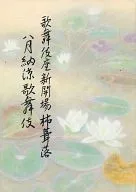 歌舞伎座新開場 杮葺落
八月納涼歌舞伎